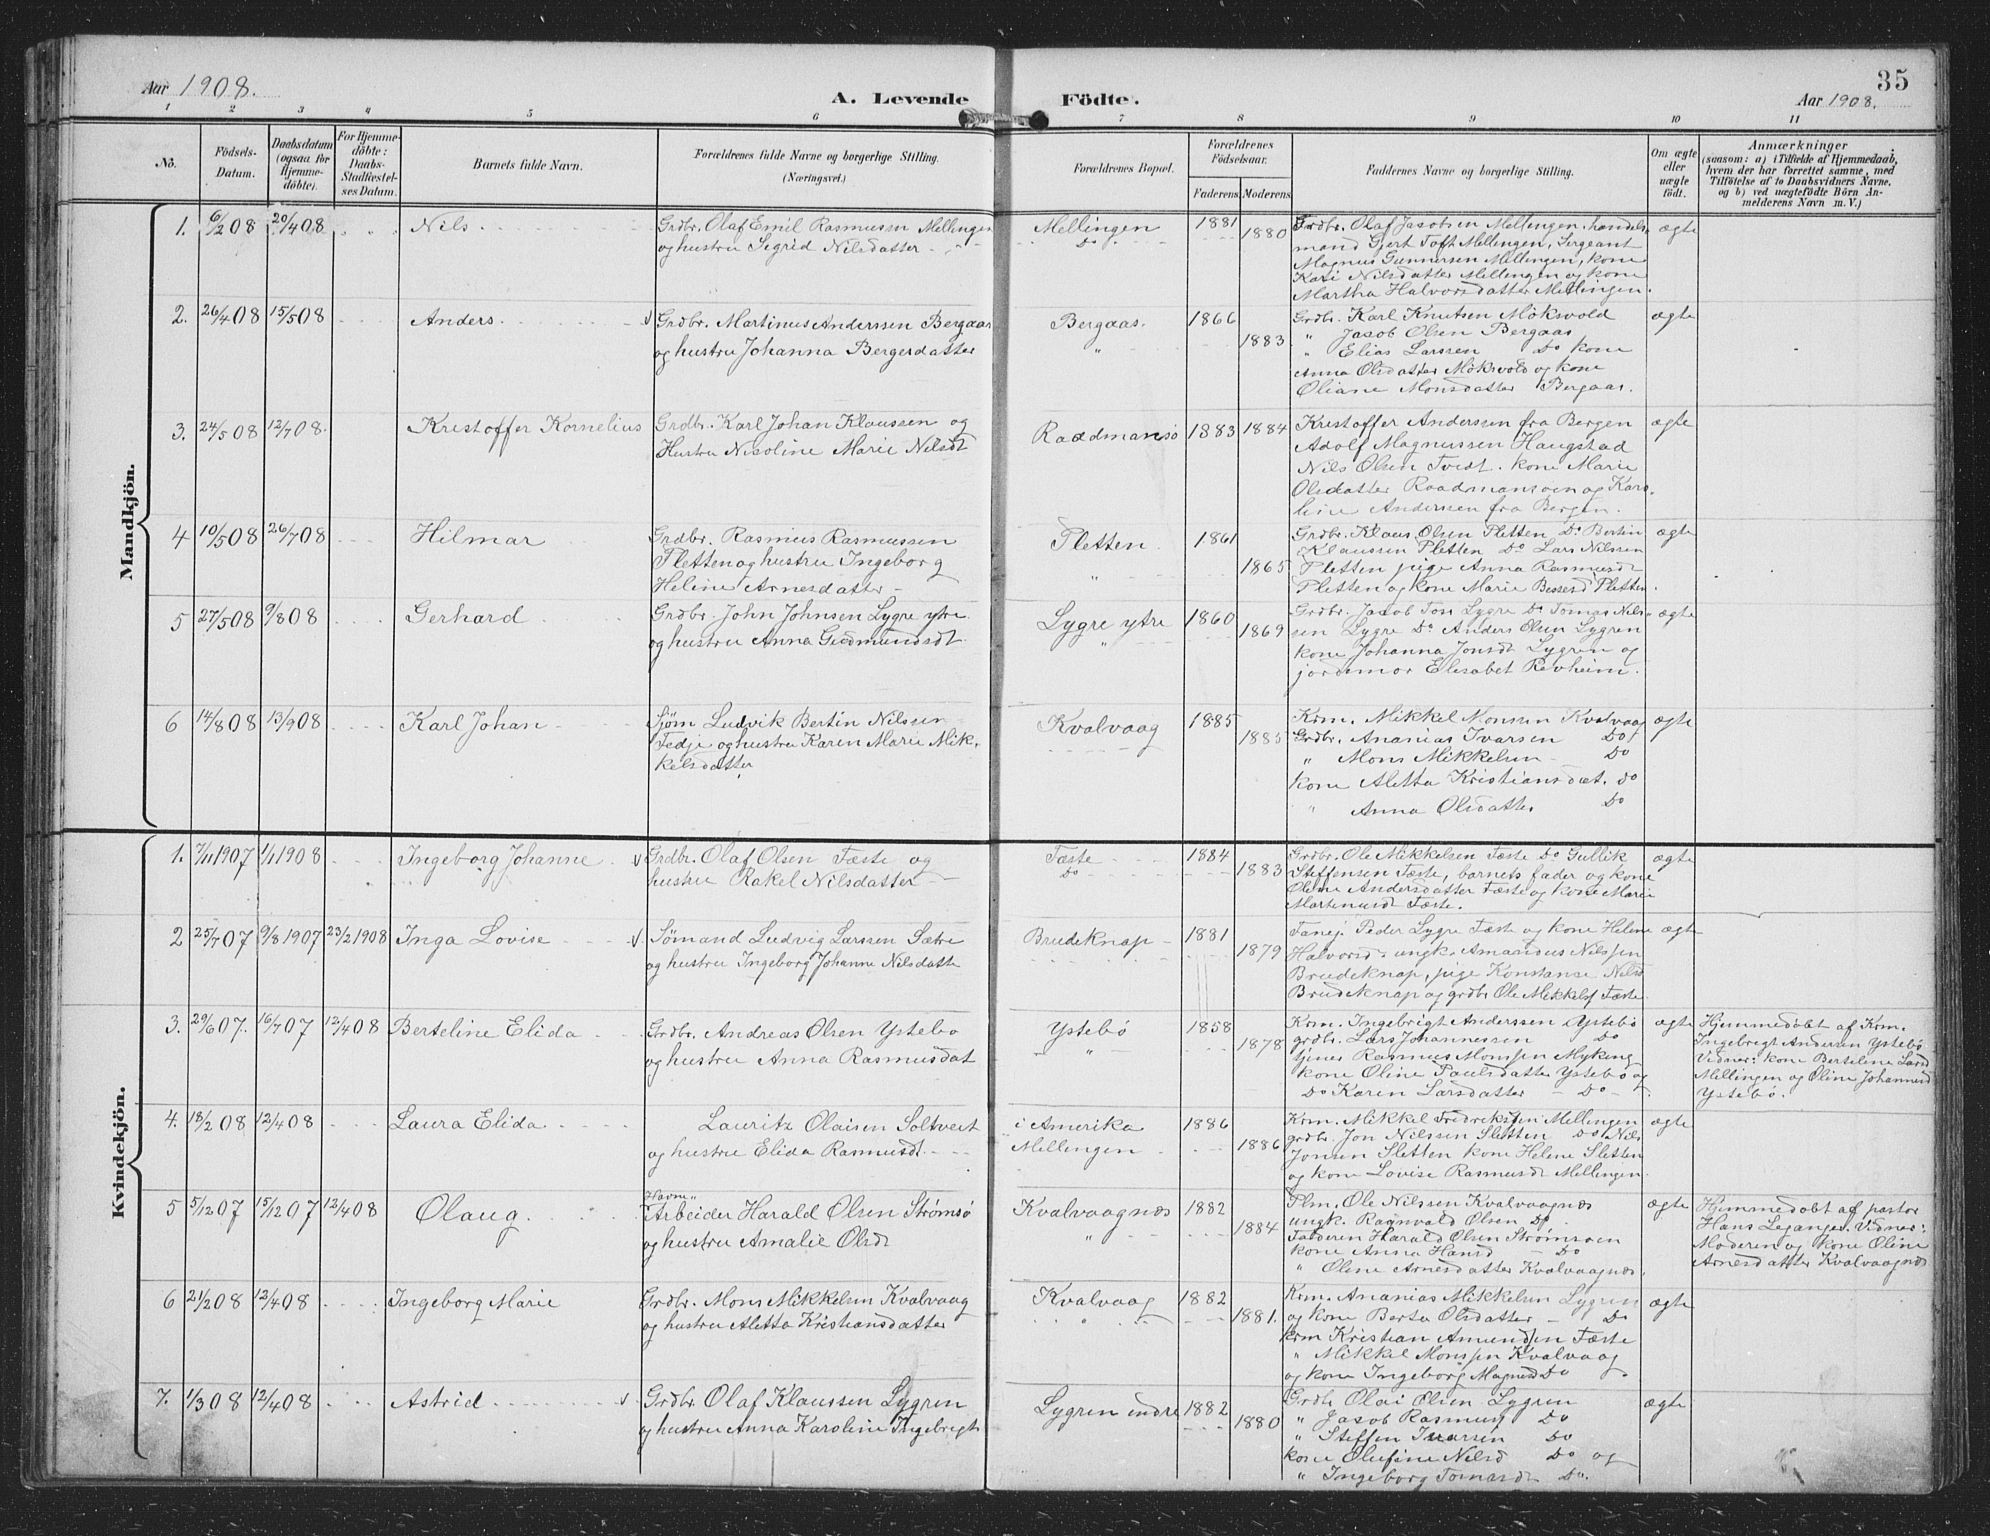 Aar 1908.
A. Levende Födte.
35
Aar 1908.
1 2 3 4 5 6 7 8 9 10 11
No.
Födsels-Datum.
Daabsdatum (ogsaa for Hjemmedöbte).
For Hjemmedöbte: Daabs-Stadfæstelses Datum.
Barnets fulde Navn.
Forældrenes fulde Navne og borgerlige Stilling. (Næringsvei.)
Forældrenes Bopæl.
Forældrenes Födselsaar.
Faderens. Moderens.
Faddernes Navne og borgerlige Stilling.
Om ægte eller uægte födt.
Anmærkninger
(saasom: a) i Tilfælde af Hjemmedaab, hvem der har forrettet samme, med Tilföielse af to Daabsvidners Navne, og b) ved uægtefödte Börn Anmelderens Navn m. V.)
Mandkjön.
1. 6/2 08 20/4 08 Nils
Grdbr. Olaf Emil Rasmussen Mellingen
og hustru Sigrid Nilsdatter
Mellingen
Do
1881 1880
Grdbr. Olaf Jacobsen Mellingen, handels-
mand Gjert Toft Mellingen, Sergeant
Magnus Gunnarsen Mellingen, kone
Kari Nilsdatter Mellingen og kone
Martha Halvorsdatter Mellingen.
ægte
2. 26/4 08 15/5 08 Anders
Grdbr. Martinus Anderssen Bergaas
og hustru Johanna Bergersdatter
Bergaas.
"
1866 1883
Grdbr. Karl Knutsen Möksvold
" Jacob Olsen Bergaas
" Elias Larssen Do kone
Anna Olsdatter Möksvold og kone
Oliane Monsdatter Bergaas.
ægte
3. 24/5 08 12/7 08. Kristoffer Kornelius
Grdbr. Karl Johan Klaussen og
Hustru Nicoline Marie Nilsdt
Raadmansö
1883 1884
Kristoffer Anderssen fra Bergen
Adolf Magnussen Haugstad
Nils Olsen Tvedt. kone Marie
Olsdatter Raadmansöen og Karo-
line Anderssen fra Bergen.
ægte
4 10/5 08 26/7 08 Hilmar
Grdbr. Rasmus Rasmussen
Sletten og hustru Ingeborg
Heline Arnesdatter
Sletten
"
1861 1865
Grdbr. Klaus Olsen Sletten Do Bertin
Klaussen Sletten Do Lars Nilssen
Sletten pige Anna Rasmusdt
Sletten og kone Marie Bessesd Sletten.
ægte
5 27/5 08 9/8 08 Gerhard
Grdbr. John Johnsen Lygre ytre
og hustru Anna Gudmundsdt
Lygre ytre
"
1860 1869
Grdbr. Jacob Toss Lygre Do Tomas Nils-
sen Lygre Do Anders Olsen Lygren
kone Johanna Jonsdt Lygren og
jordemor Elisabet Revheim.
ægte
6 14/8 08 13/9 08 Karl Johan
Sjöm Ludvik Bertin Nilssen
Fedje og hustru Karen Marie Mik-
kelsdatter
Kvalvaag
1885 1885
Krm. Mikkel Monsen Kvalvaag
Grdbr. Ananias Ivarsen Do
" Mons Mikkelsen Do
kone Aletta Kristiansdat. Do
" Anna Olsdatter Do
ægte
Kvindekjön.
1. 7/11 1907 1/1 1908 Ingeborg Johanne
Grdbr. Olaf Olsen Fæste og
hustru Rakel Nilsdatter
Fæste
Do
1884 1883
Grdbr. Ole Mikkelsen Fæste Do Gullik
Steffensen Fæste, barnets fader og kone
Oline Andersdatter Fæste og kone Marie
Martinusdt Fæste.
ægte
2 25/7 07 9/8 1907 23/2 1908 Inga Lovise
Sömand Ludvig Larssen Sætre
og hustru Ingeborg Johanne Nilsdatte
Brudeknap
1881 1879
Peder Lygre Fæste og kone Helene
Halvorsd. ungk. Amandus Nilssen
Brudeknap, pige Konstanse Nilsd
Brudeknap og grdbr Ole Mikkels Fæste
ægte
3. 29/6 07. 16/7 07 12/4 08 Berteline Elida
Grdbr. Andreas Olsen Ystebö
og hustru Anna Rasmusdat
Ystebö
"
1858 1878
Krm. Ingebrigt Anderssen Ystebö
grdbr. Lars Johannessen Do
tjener Rasmus Monssen Myking
kone Oline Paulsdatter Ystebö og
Do Karen Larsdatter - Do -
ægte
Hjemmedöbt af Krm.
Ingebrigt Andersen Ystebö
Vidner: kone Bertelene Larsd
Mellingen og Oline Johannesd
Ystebö.
4. 18/2 08 12/4 08 Laura Elida
Lauritz Olaisen Soltveit
og hustru Elida Rasmusdt
i Amerika
Mellingen
1886 1886
Krm. Mikkel Fredreksen Mellingen
grdbr. Jon Nilssen Sletten Do Nils
Jonsen Sletten kone Helene Sletten
og kone Lovise Rasmusdt Mellingen
ægte
5 5/12 07 15/12 07 12/4 08 Olaug
Havne"
Arbeider Harald Olsen Strömsö
og hustru Amalie Olsdt
Kvalvaagnæs
"
1882 1884
Plm. Ole Nilssen Kvalvaagnæs
ungk. Ragnvald Olsen Do
Faderen Harald Olsen Strömsöen
kone Anna Hansd - Do
" Oline Arnesdatter Kvalvaagnæs.
ægte
Hjemmedöbt af pastor
Hans Leganger. Vidner:
Moderen og kone Oline
Arnesdatter Kvalvaagnæs
6 21/2 08 12/4 08 Ingeborg Marie
Grdbr. Mons Mikkelsen Kvalvaag
og hustru Aletta Kristiansdatter
Kvalvaag
"
1882 1881.
Krm. Ananias Mikkelsen Lygren
og kone Berta Olsdatter - Do
Krm Kristian Amundsen Fæste
" Mikkel Monssen Kvalvaag
og kone Ingeborg Magnesd Do
ægte
7. 1/3 08 12/4 08 Astrid
Grdbr. Olaf Klaussen Lygren
og hustru Anna Karoline Ingebrigt
Lygren indre
1882 1880
Grdbr Olai Olsen Lygren
" Jacob Rasmus Do
" Steffen Ivarsen Do
kone Olufine Nilsd Do og
" Ingeborg Tomasdt Do.
ægte